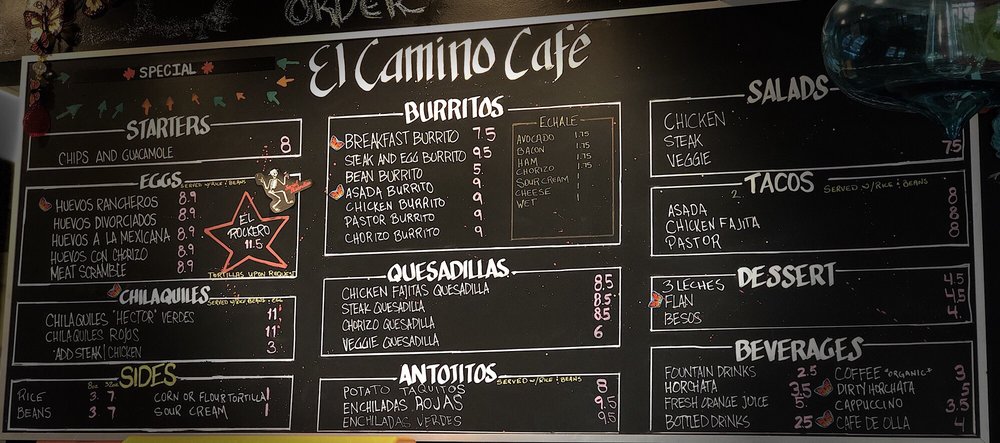 ORDER
SPECIAL
El Camino Café
STARTERS
CHIPS AND GUACAMOLE 8
EGGS SERVED W/RICE & BEANS
HUEVOS RANCHEROS 8.9
HUEVOS DIVORCIADOS 8.9
HUEVOS A LA MEXICANA 8.9
HUEVOS CON CHORIZO 8.9
MEAT SCRAMBLE 8.9
EL
ROCKERO
11.5
TORTILLAS UPON REQUEST
CHILAQUILES SERVED W/RICE, BEANS & EGG
CHILAQUILES "HECTOR" VERDES 11
CHILAQUILES ROJOS 11
ADD STEAK | CHICKEN 3
SIDES
RICE 3. 7 CORN OR FLOUR TORTILLA 1
BEANS 3. 7 SOUR CREAM 1
BURRITOS
BREAKFAST BURRITO 7.5
STEAK AND EGG BURRITO 9.5
BEAN BURRITO 5
ASADA BURRITO 9
CHICKEN BURRITO 9
PASTOR BURRITO 9
CHORIZO BURRITO 9
ECHALE
AVOCADO 1.75
BACON 1.75
HAM 1.75
CHORIZO 1.75
SOUR CREAM 1
CHEESE 1
WET 1
QUESADILLAS
CHICKEN FAJITAS QUESADILLA 8.5
STEAK QUESADILLA 8.5
CHORIZO QUESADILLA 8.5
VEGGIE QUESADILLA 6
ANTOJITOS SERVED W/RICE & BEANS
POTATO TAQUITOS 8
ENCHILADAS ROJAS 9.5
ENCHILADAS VERDES 9.5
SALADS
CHICKEN
STEAK
VEGGIE 7.5
TACOS SERVED W/RICE & BEANS
2
ASADA 8
CHICKEN FAJITA 8
PASTOR 8
DESSERT
3 LECHES 4.5
FLAN 4.5
BESOS 4.
BEVERAGES
FOUNTAIN DRINKS 2.5 COFFEE "ORGANIC" 3
HORCHATA 3.5 DIRTY HORCHATA 5
FRESH ORANGE JUICE 5. CAPPUCCINO 3.5
BOTTLED DRINKS 2.5 CAFE DE OLLA 4